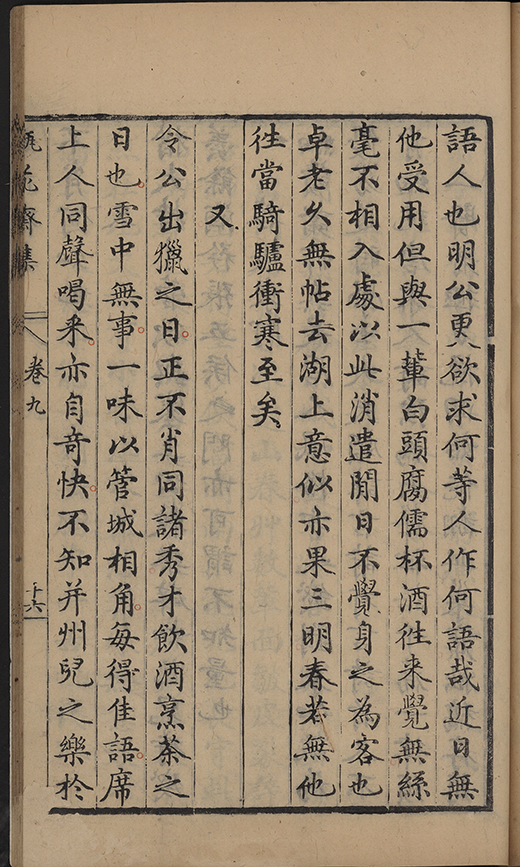 語人也明公更欲求何等人作何語哉近日無
他受用但與一輩白頭腐儒杯酒徃来覺無絲
毫不相入處以此消遣閒日不覺身之為客也
卓老久無帖去湖上意似亦果三明春若無他
徃當騎驢衝寒至矣
又
令公出獵之日正不肖同諸秀才飲酒烹茶之
日也雪中無事一味以管城相角每得佳語席
上人同聲喝采亦自奇快不知并州兒之樂於
瓶花齋集
卷九
十六